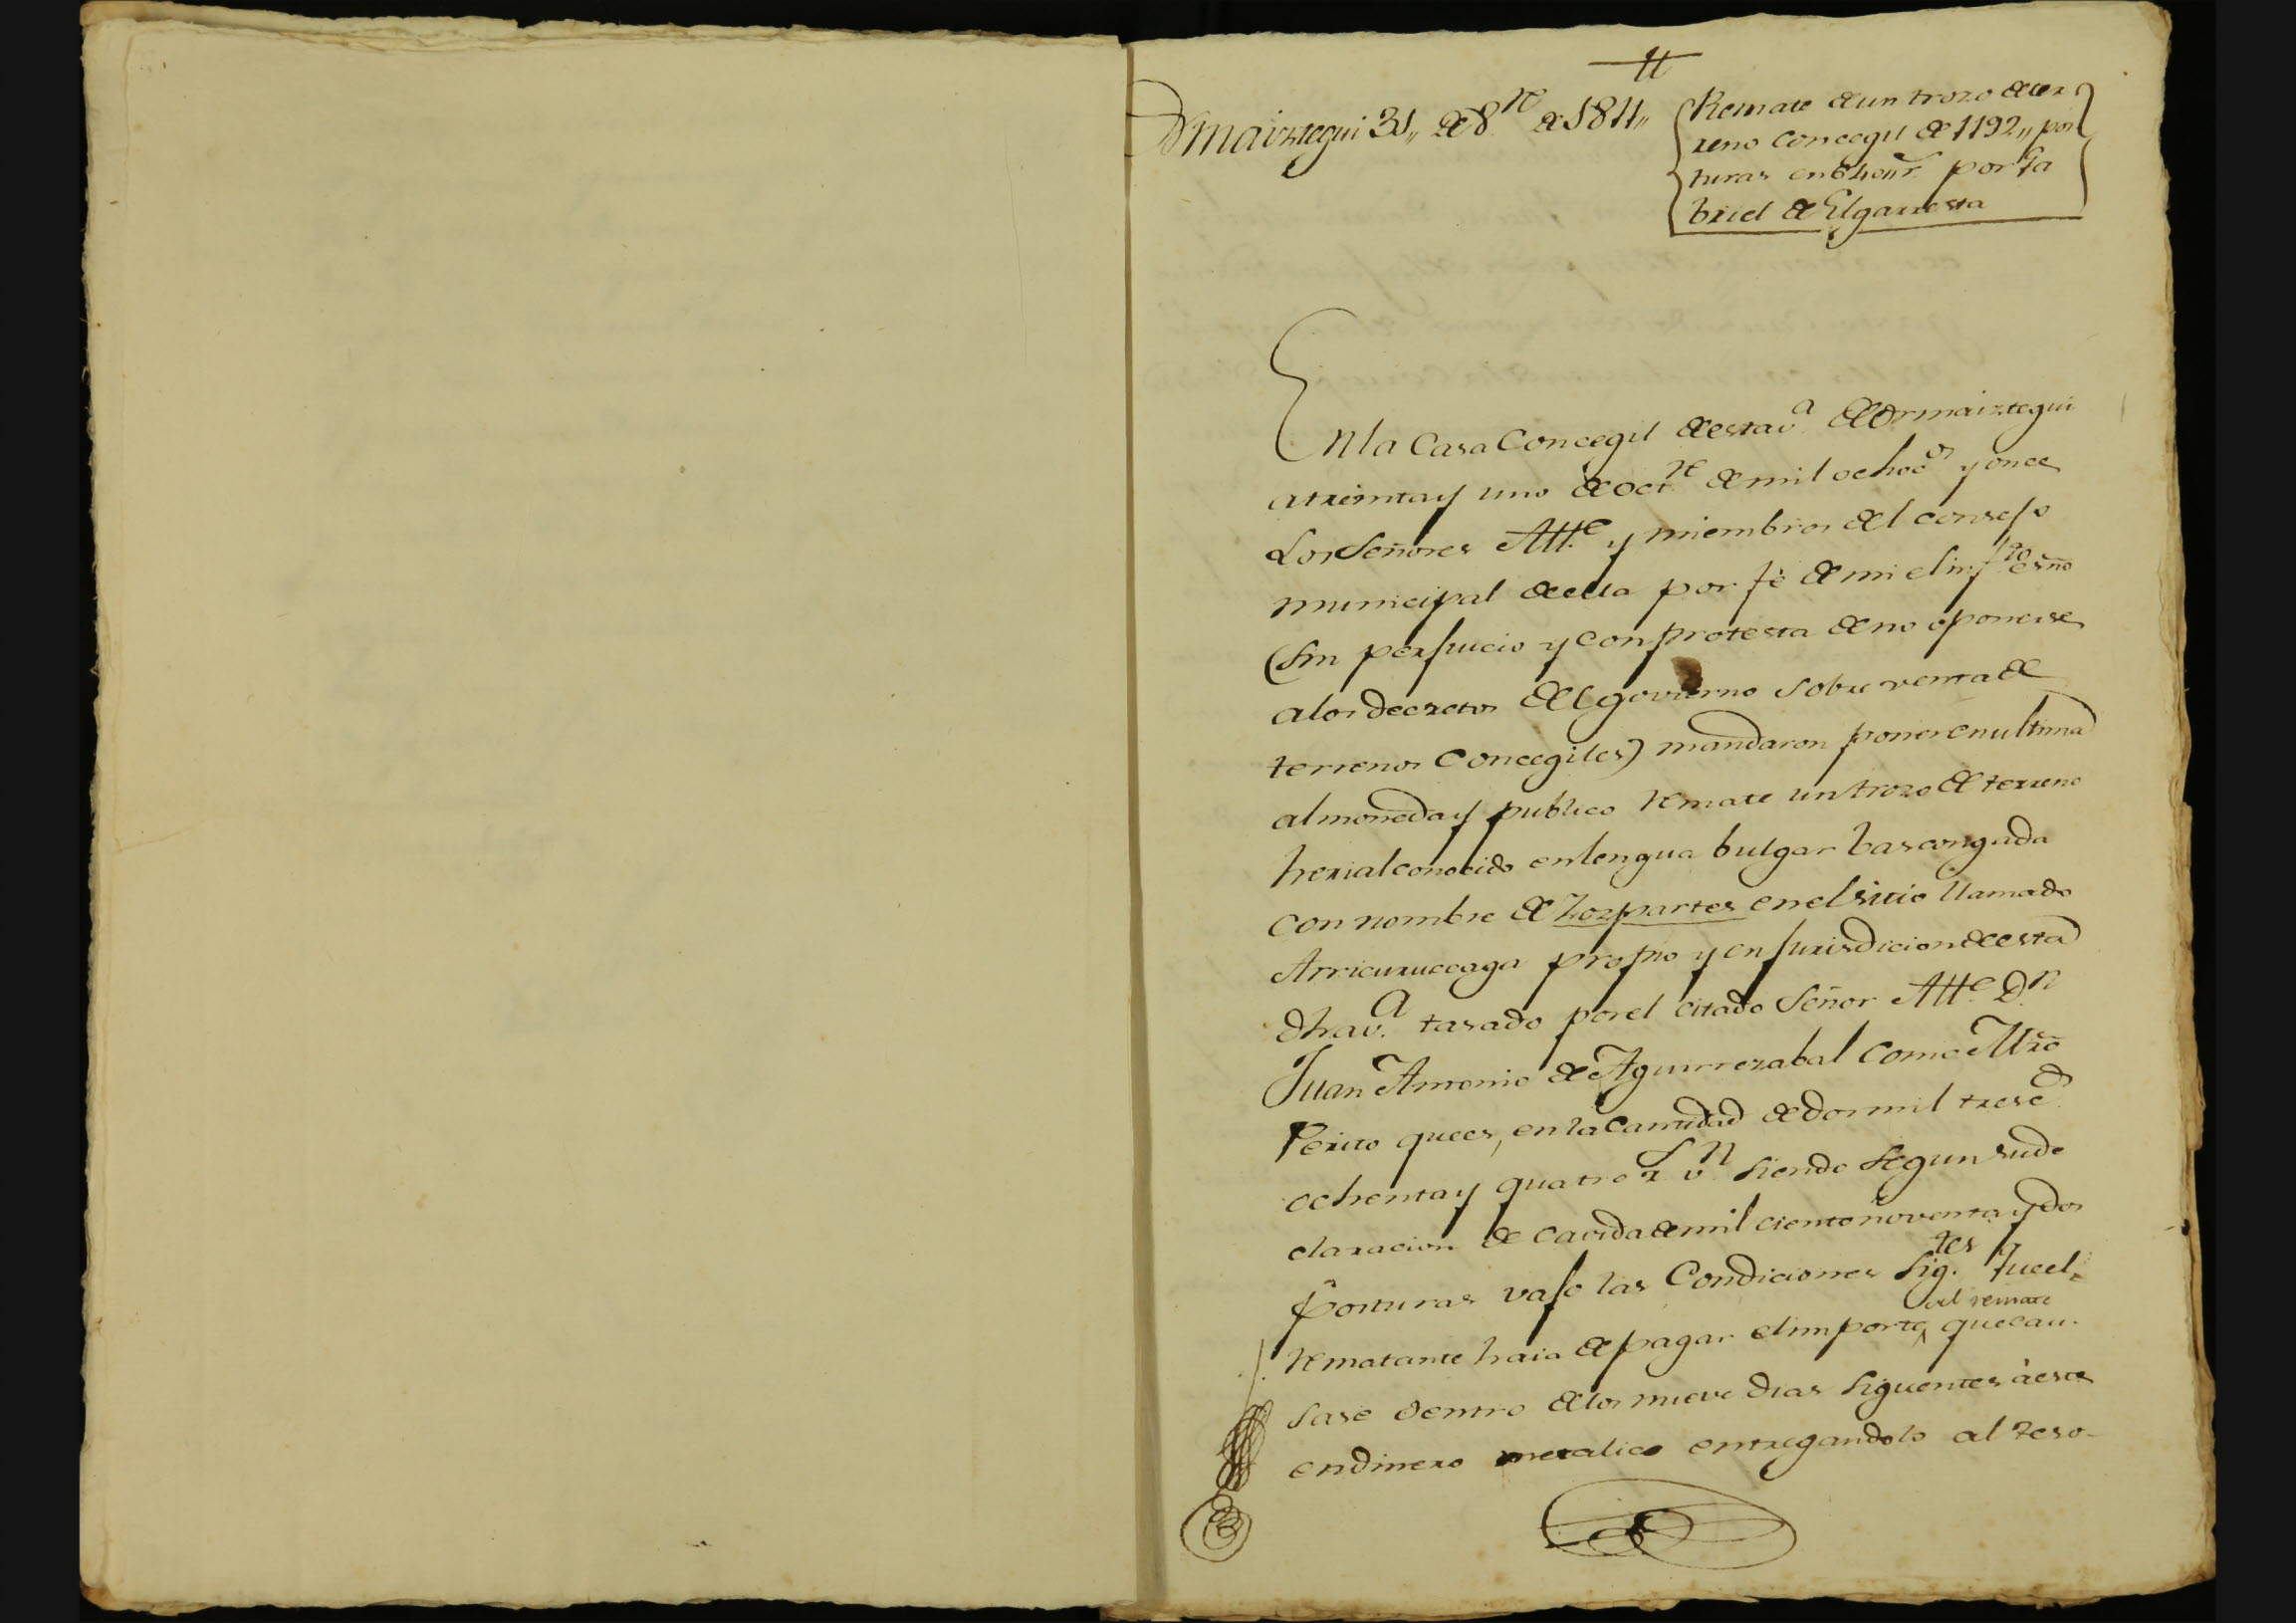 Ormaiztegui 31,, de 8.re de 1811,,
Remate de un trozo de ter
reno Concegil de 1192,, pos
turas en por Ga
briel de Elgarresta
En la Casa Concegil de esta v.a de Ormaiztegui
a treinta y uno de oct.re de mil ochoc.os y once
Los Señores Alt.e y miembros del consejo
municipal de ella por fè de mi el inf.to esño
(sin perjuicio y con protesta de no oponerse
a los decretos del govierno sobre venta de
terrenos Concegiles) mandaron poner en ultima
almoneda y publico Remate un trozo de terreno
herial conocido en lengua bulgar bascongada
con nombre de Zozpartes en el sitio llamado
Arricuruceaga propio y en jurisdicion de esta
dha v.a tasado por el citado Señor Alt.e D.n
Juan Antonio de Aguirrezabal como Mrõ
Perito que es, en la Cantidad de dos mil tresc.s
ochenta y quatro r.s v.n siendo segun su de
claracion de cavida de mil ciento noventa y dos
Posturas vajo las Condiciones sig.tes Que el
Rematante haia de pagar el importe del remate que cau-
sase dentro de los nueve dias siguentes à este
en dinero metalico entregandolo al teso-